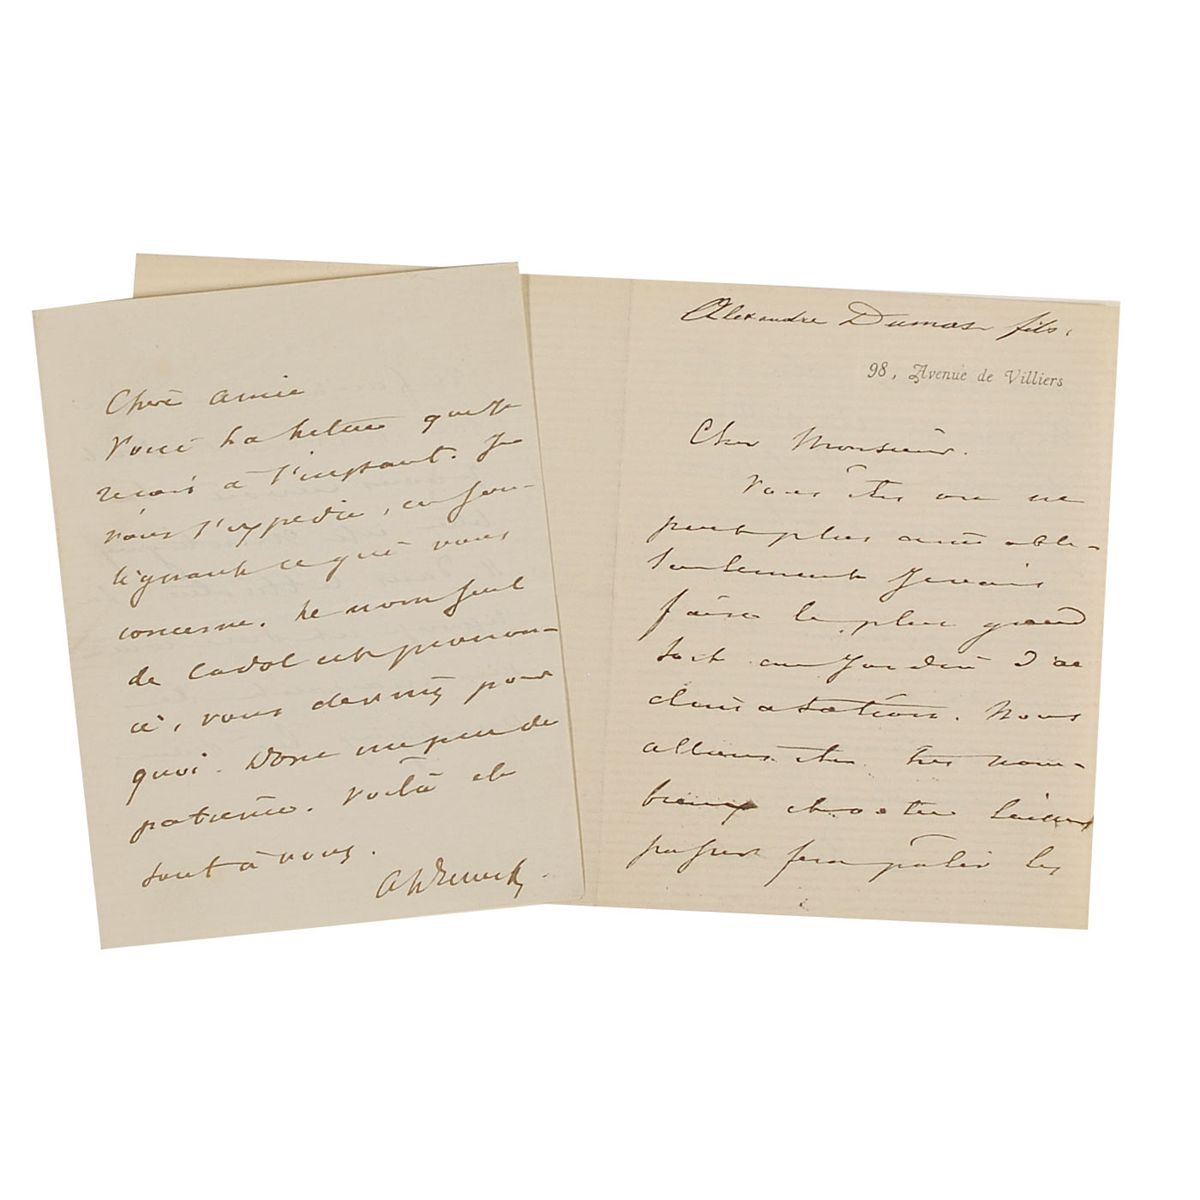 Chère amie
Voici la lettre que je
reçois à l'instant. Je
vous l'expédie, en sou-
lignant ce qui vous
concerne. Le nom seul
de Cadol est prononc-
cé, vous devinez pour
quoi. Donc un peu de
patience. Voilà et
tout à vous.
Alexandre Dumas fils.
98, Avenue de Villiers
Cher Monsieur.
Vous êtes on ne
peut plus aimable.
Seulement je vais
faire le plus grand
tort au Jardin d'ac
climatation. Nous
allons être très nom-
breux et notre
passer fera pâlir les